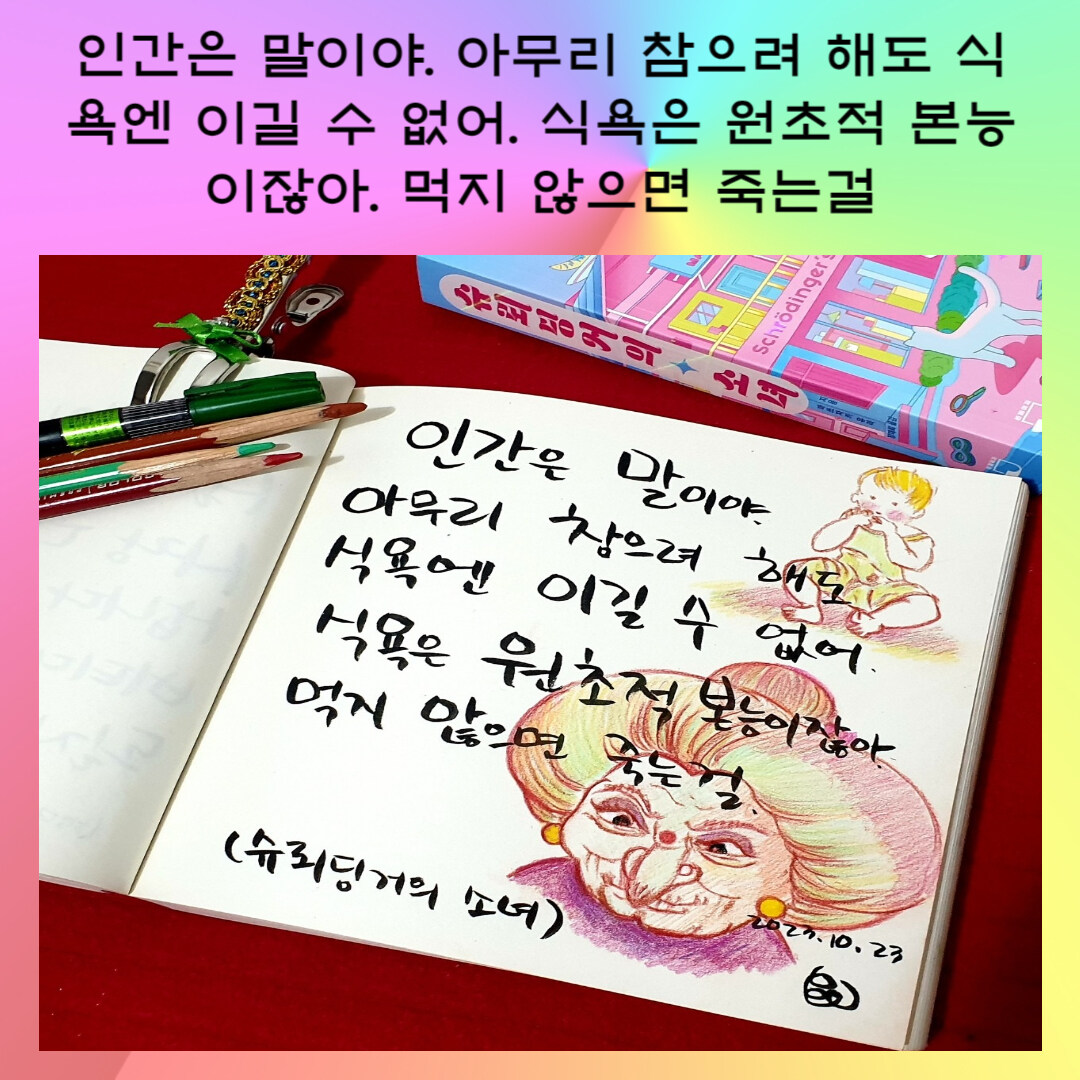 인간은 말이야. 아무리 참으려 해도 식
욕엔 이길 수 없어. 식욕은 원초적 본능
이잖아. 먹지 않으면 죽는걸
슈뢰딩거의 소녀
Schrödinger's
인간은 말이야.
아무리 참으려 해도
식욕엔 이길 수 없어.
식욕은 원초적 본능이잖아.
먹지 않으면 죽는걸.
(슈뢰딩거의 소녀)
10. 23